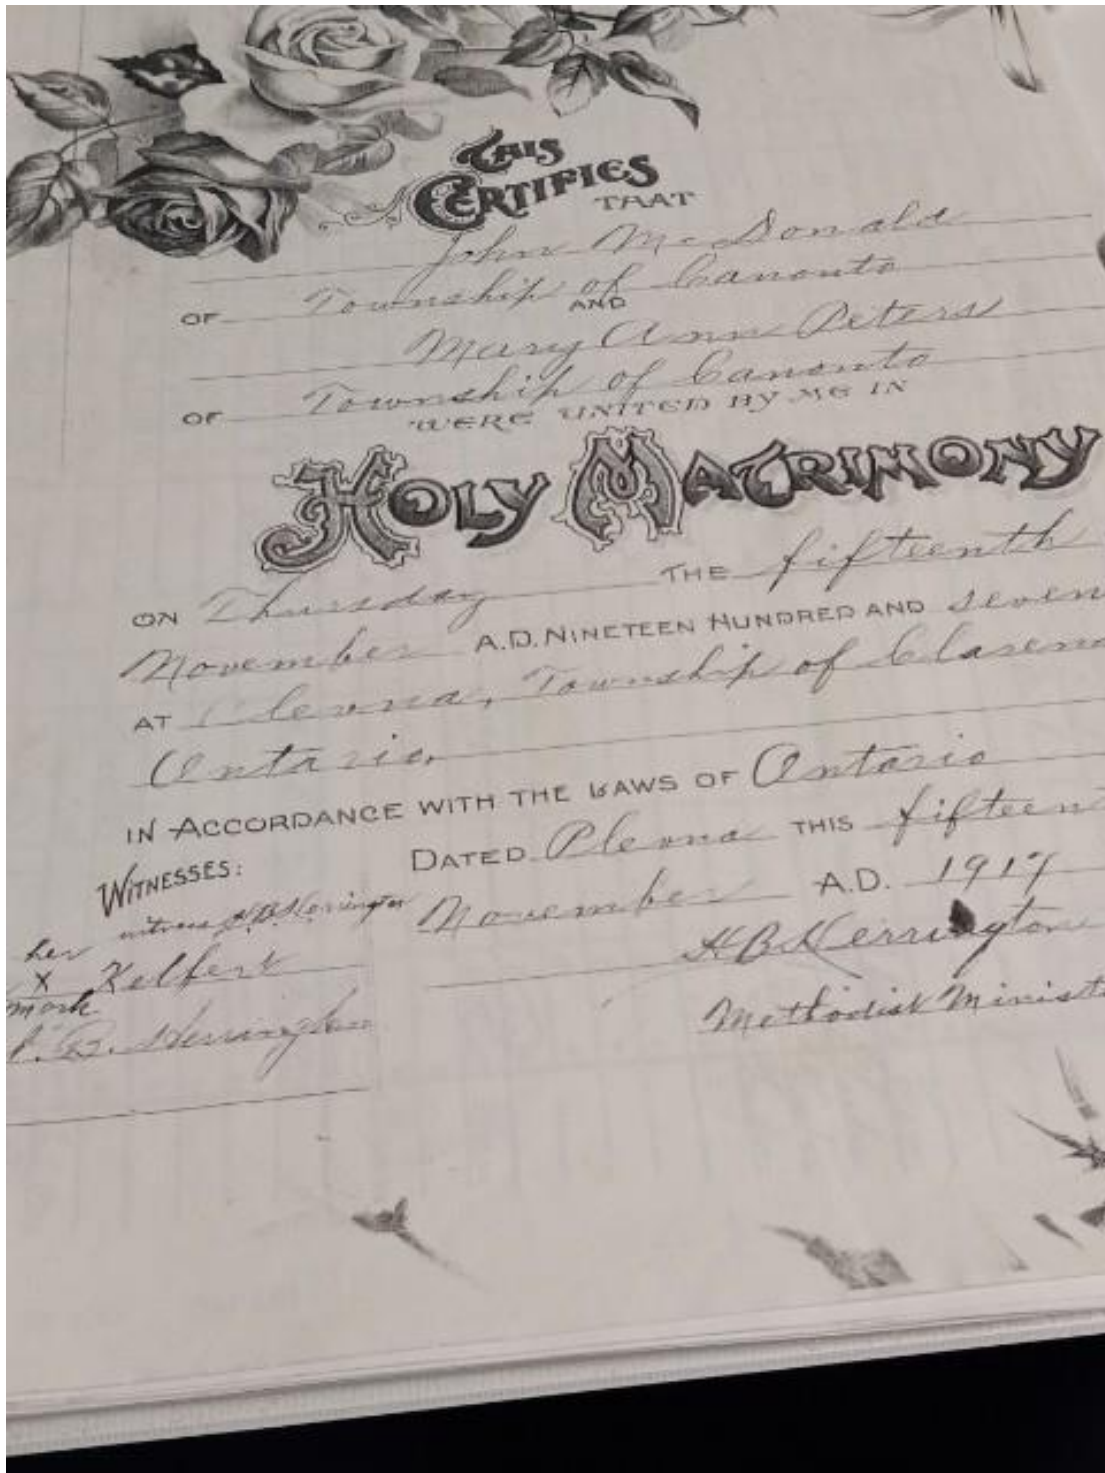 THIS
CERTIFIES
THAT
John McDonald
OF Township of Canonto
AND
Mary Ann Peters
OF Township of Canonto
WERE UNITED BY ME IN
HOLY MATRIMONY
ON Thursday THE fifteenth
November A.D. NINETEEN HUNDRED AND seven
AT Plevna, Township of Claren
Ontario.
IN ACCORDANCE WITH THE LAWS OF Ontario
WITNESSES:
witness H.B. Herrington
her
X Kelfert
mark
B. Herrington
DATED Plevna THIS fifteen
November A.D. 1917
H B Herrington
Methodist Minist